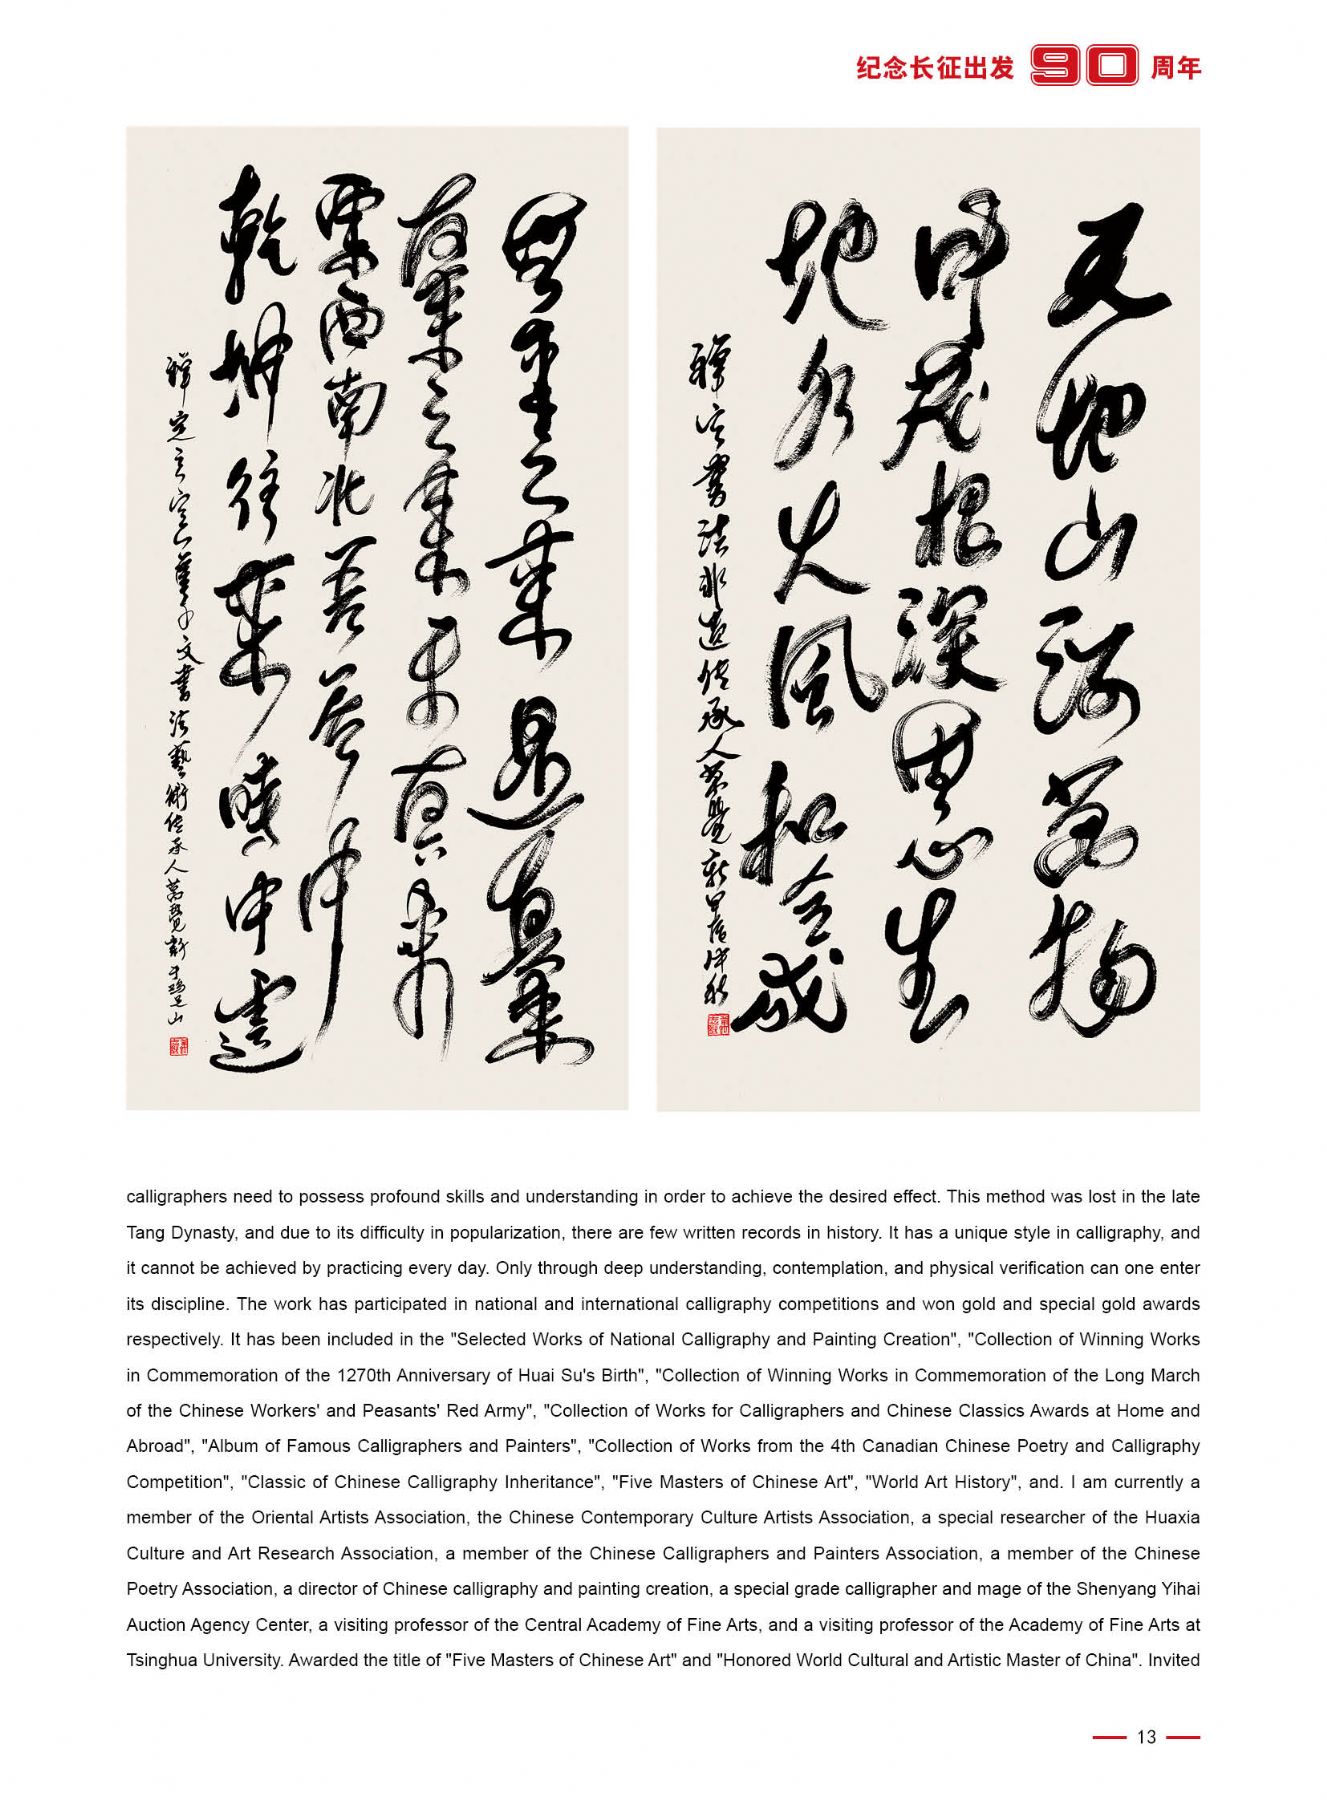 纪念长征出发 90 周年
天地山河万物
根深思生
地水火风和合成
乾坤往来
calligraphers need to possess profound skills and understanding in order to achieve the desired effect. This method was lost in the late
Tang Dynasty, and due to its difficulty in popularization, there are few written records in history. It has a unique style in calligraphy, and
it cannot be achieved by practicing every day. Only through deep understanding, contemplation, and physical verification can one enter
its discipline. The work has participated in national and international calligraphy competitions and won gold and special gold awards
respectively. It has been included in the "Selected Works of National Calligraphy and Painting Creation", "Collection of Winning Works
in Commemoration of the 1270th Anniversary of Huai Su's Birth", "Collection of Winning Works in Commemoration of the Long March
of the Chinese Workers' and Peasants' Red Army", "Collection of Works for Calligraphers and Chinese Classics Awards at Home and
Abroad", "Album of Famous Calligraphers and Painters", "Collection of Works from the 4th Canadian Chinese Poetry and Calligraphy
Competition", "Classic of Chinese Calligraphy Inheritance", "Five Masters of Chinese Art", "World Art History", and. I am currently a
member of the Oriental Artists Association, the Chinese Contemporary Culture Artists Association, a special researcher of the Huaxia
Culture and Art Research Association, a member of the Chinese Calligraphers and Painters Association, a member of the Chinese
Poetry Association, a director of Chinese calligraphy and painting creation, a special grade calligrapher and mage of the Shenyang Yihai
Auction Agency Center, a visiting professor of the Central Academy of Fine Arts, and a visiting professor of the Academy of Fine Arts at
Tsinghua University. Awarded the title of "Five Masters of Chinese Art" and "Honored World Cultural and Artistic Master of China". Invited
13